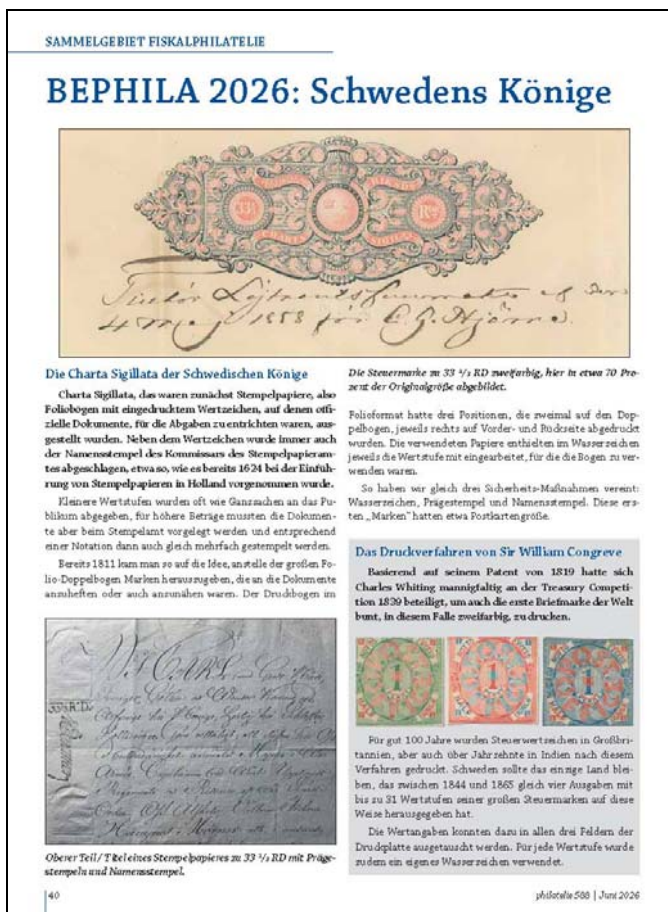 SAMMELGEBIET FISKALPHILATELIE
BEPHILA 2026: Schwedens Könige
33⅓
CHARTA
SIGILL
4 Maj 1858 för C. G. Hjörne.
Die Charta Sigillata der Schwedischen Könige
Charta Sigillata, das waren zunächst Stempelpapiere, also
Foliobögen mit eingedrucktem Wertzeichen, auf denen offi-
zielle Dokumente, für die Abgaben zu entrichten waren, aus-
gestellt wurden. Neben dem Wertzeichen wurde immer auch
der Namensstempel des Kommissars des Stempelpapieram-
tes abgeschlagen, etwa so, wie es bereits 1624 bei der Einfüh-
rung von Stempelpapieren in Holland vorgenommen wurde.
Kleinere Wertstufen wurden oft wie Ganzsachen an das Pu-
blikum abgegeben, für höhere Beträge mussten die Dokumen-
te aber beim Stempelamt vorgelegt werden und entsprechend
einer Notation dann auch gleich mehrfach gestempelt werden.
Bereits 1811 kam man so auf die Idee, anstelle der großen Fo-
lio-Doppelbogen Marken herauszugeben, die an die Dokumente
anzuheften oder auch anzunähen waren. Der Druckbogen im
33⅓ R.Dr
Oberer Teil / Titel eines Stempelpapieres zu 33 ¹/₃ RD mit Präge-
stempeln und Namensstempel.
Die Steuermarke zu 33 ¹/₃ RD zweifarbig, hier in etwa 70 Pro-
zent der Originalgröße abgebildet.
Folioformat hatte drei Positionen, die zweimal auf den Dop-
pelbogen, jeweils rechts auf Vorder- und Rückseite abgedruckt
wurden. Die verwendeten Papiere enthielten im Wasserzeichen
jeweils die Wertstufe mit eingearbeitet, für die die Bogen zu ver-
wenden waren.
So haben wir gleich drei Sicherheits-Maßnahmen vereint:
Wasserzeichen, Prägestempel und Namensstempel. Diese ers-
ten „Marken" hatten etwa Postkartengröße.
Das Druckverfahren von Sir William Congreve
Basierend auf seinem Patent von 1819 hatte sich
Charles Whiting mannigfaltig an der Treasury Competi-
tion 1839 beteiligt, um auch die erste Briefmarke der Welt
bunt, in diesem Falle zweifarbig, zu drucken.
1 1 1
Für gut 100 Jahre wurden Steuerwertzeichen in Großbri-
tannien, aber auch über Jahrzehnte in Indien nach diesem
Verfahren gedruckt. Schweden sollte das einzige Land blei-
ben, das zwischen 1844 und 1865 gleich vier Ausgaben mit
bis zu 31 Wertstufen seiner großen Steuermarken auf diese
Weise herausgegeben hat.
Die Wertangaben konnten dazu in allen drei Feldern der
Druckplatte ausgetauscht werden. Für jede Wertstufe wurde
zudem ein eigenes Wasserzeichen verwendet.
40
philatelie 588 | Juni 2026